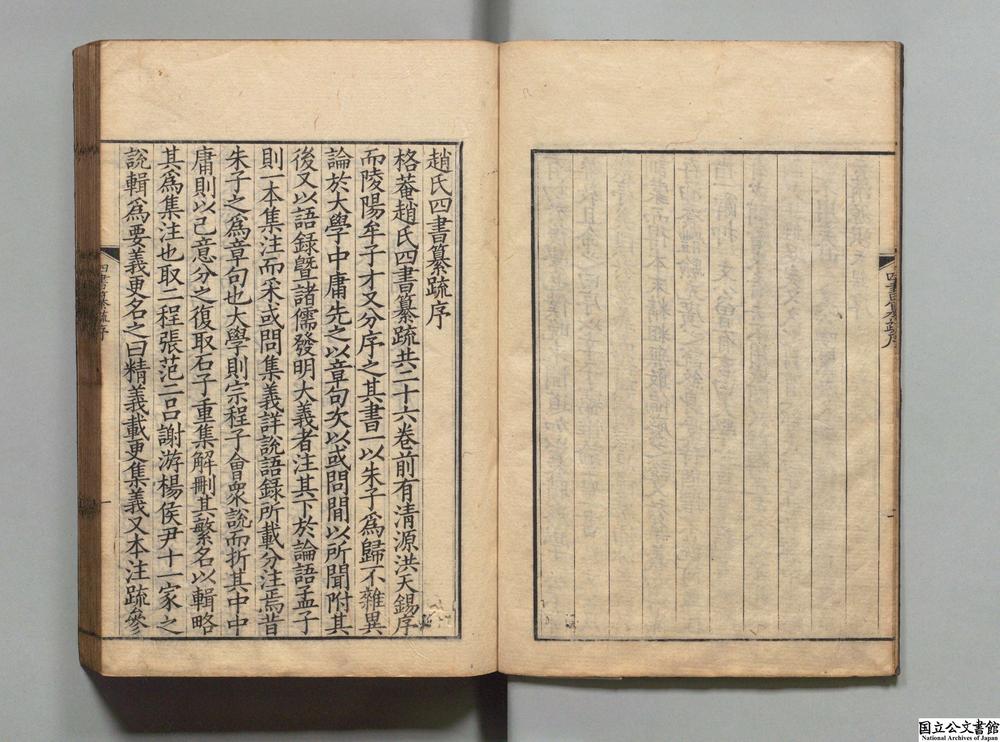 四書纂疏序
趙氏四書纂疏序
格菴趙氏四書纂疏共二十六卷前有清源洪天錫序
而陵陽牟子才又分序之其書一以朱子爲歸不雜異
論於大學中庸先之以章句次以或問間以所聞附其
後又以語録曁諸儒發明大義者注其下於論語孟子
則一本集注而采或問集義詳說語錄所載分注焉昔
朱子之爲章句也大學則宗程子會衆說而折其中中
庸則以己意分之復取石子重集解刪其繁名以輯略
其爲集注也取二程張范二呂謝游楊侯尹十一家之
說輯爲要義更名之曰精義載更集義又本注疏參
四書纂疏序
一
国立公文書館
National Archives of Japan